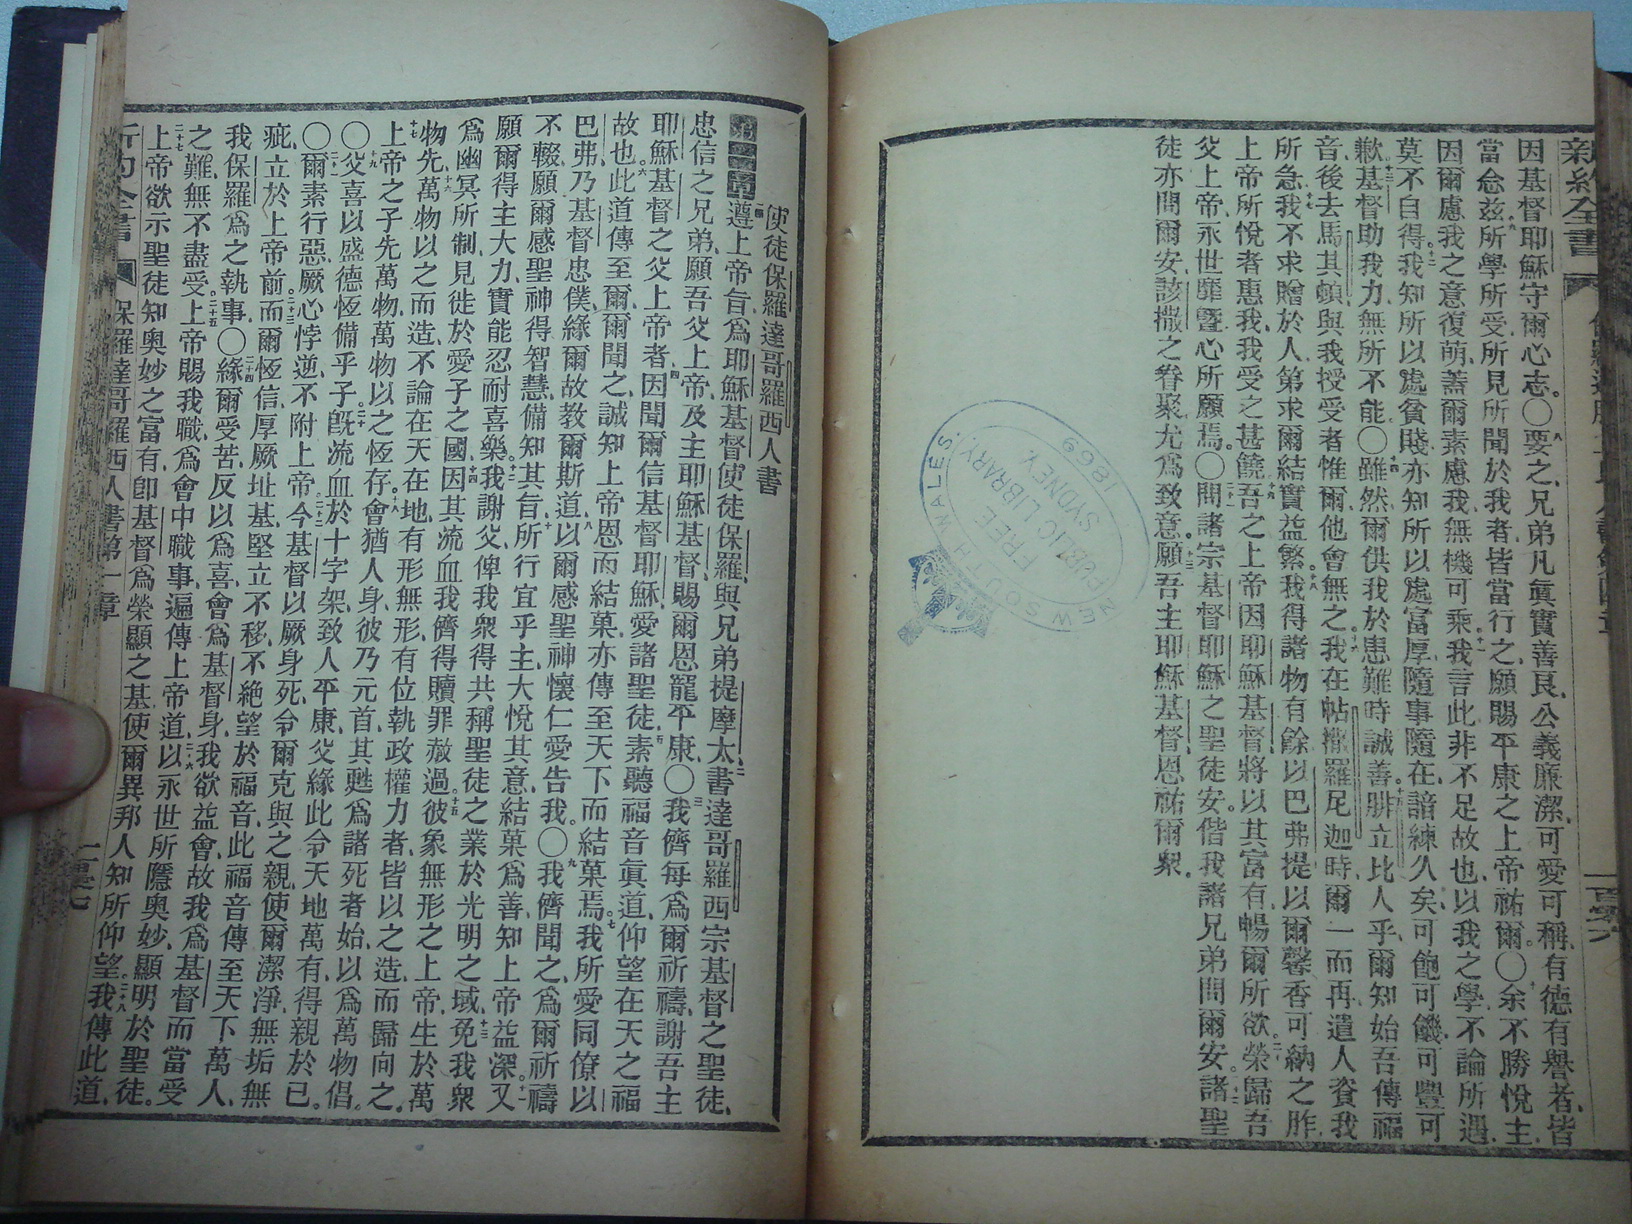 新約全書
因基督耶穌守爾心志。〇要之兄弟凡眞實善良、公義廉潔、可愛可稱、有德有譽者、皆
當念兹、所學所受所見所聞於我者、皆當行之、願賜平康之上帝祐爾。〇余不勝悅主、
因爾慮我之意復萌、蓋爾素慮我、無機可乘、我言此非不足故也、以我之學、不論所遇、
莫不自得、我知所以處貧賤、亦知所以處富厚、隨事隨在、諳練久矣、可飽可饑、可豐可
歉、基督助我力、無所不能、〇雖然爾供我於患難時誠善、腓立比人乎、爾知始吾傳福
音、後去馬其頓、與我授受者惟爾、他會無之、我在帖撒羅尼迦時、爾一而再、遣人資我
所急、我不求贈於人、第求爾結實益繁、我得諸物有餘、以巴弗提以爾馨香可納之胙
上帝所悅者惠我、我受之甚饒、吾之上帝、因耶穌基督、將以其富有、暢爾所欲、榮歸吾
父上帝、永世靡曁、心所願焉。〇問諸宗基督耶穌之聖徒安、偕我諸兄弟問爾安、諸聖
徒亦問爾安、該撒之眷聚、尤爲致意、願吾主耶穌基督恩祐爾衆、
NEW SOUTH WALES.
FREE
PUBLIC LIBRARY
SYDNEY.
1869
使徒保羅達哥羅西人書
第一章 遵上帝旨、爲耶穌基督使徒保羅、與兄弟提摩太、書達哥羅西宗基督之聖徒、
忠信之兄弟、願吾父上帝、及主耶穌基督、賜爾恩寵平康、〇我儕每爲爾祈禱、謝吾主
耶穌基督之父上帝者、因聞爾信基督耶穌、愛諸聖徒、素聽福音眞道、仰望在天之福
故也、此道傳至爾、爾聞之、誠知上帝恩、而結菓、亦傳至天下而結菓焉、我所愛同僚以
巴弗、乃基督忠僕、緣爾故教爾斯道、以爾感聖神懷仁愛告我、〇我儕聞之、爲爾祈禱
不輟、願爾感聖神得智慧、備知其旨、所行宜乎主、大悅其意、結菓爲善、知上帝益深、又
願爾得主大力、實能忍耐喜樂、我謝父、俾我衆得共稱聖徒之業於光明之域、免我衆
爲幽冥所制、見徙於愛子之國、因其流血、我儕得贖罪赦過、彼象無形之上帝、生於萬
物先、萬物以之而造、不論在天在地、有形無形、有位執政權力者、皆以之造、而歸向之、
上帝之子先萬物、萬物以之恆存、會猶人身、彼乃元首、其甦爲諸死者始、以爲萬物倡。
〇父喜以盛德恆備乎子、旣流血於十字架、致人平康、父緣此令天地萬有、得親於己。
〇爾素行惡、厥心悖逆、不附上帝、今基督以厥身死、令爾克與之親、使爾潔淨、無垢無
疵、立於上帝前、而爾恆信厚厥址基、堅立不移、不絶望於福音、此福音傳至天下萬人、
我保羅爲之執事、〇緣爾受苦、反以爲喜、會爲基督身、我欲益會、故我爲基督而當受
之難、無不盡受、上帝賜我職、爲會中職事、遍傳上帝道、以永世所隱奥妙、顯明於聖徒、
上帝欲示聖徒、知奥妙之富有、卽基督爲榮顯之基、使爾異邦人知所仰望、我傳此道、
新約全書 保羅達哥羅西人書第一章